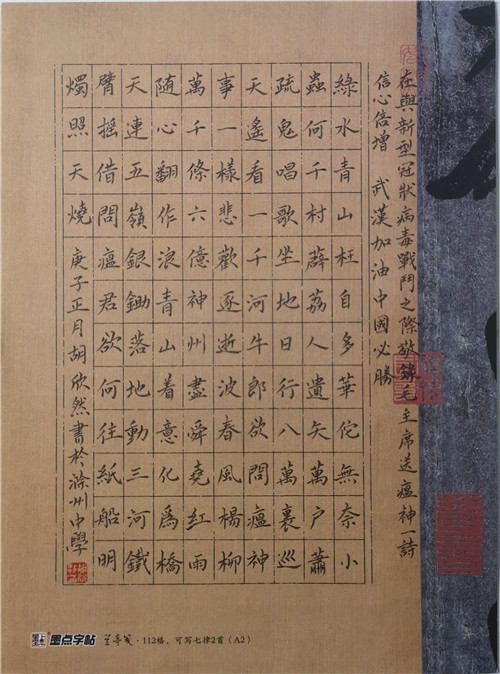 在與新型冠狀病毒戰鬥之際敬錄毛主席送瘟神一詩
信心倍增 武漢加油中國必勝
綠水青山枉自多華佗無奈小
蟲何千村薜荔人遺矢萬戶蕭
疏鬼唱歌坐地日行八萬裏巡
天遙看一千河牛郎欲問瘟神
事一樣悲歡逐逝波春風楊柳
萬千條六億神州盡舜堯紅雨
隨心翻作浪青山着意化爲橋
天連五嶺銀鋤落地動三河鐵
臂搖借問瘟君欲何往紙船明
燭照天燒 庚子正月胡欣然書於滁州中學
墨点字帖 兰亭笺·112格,可写七律2首(A2)